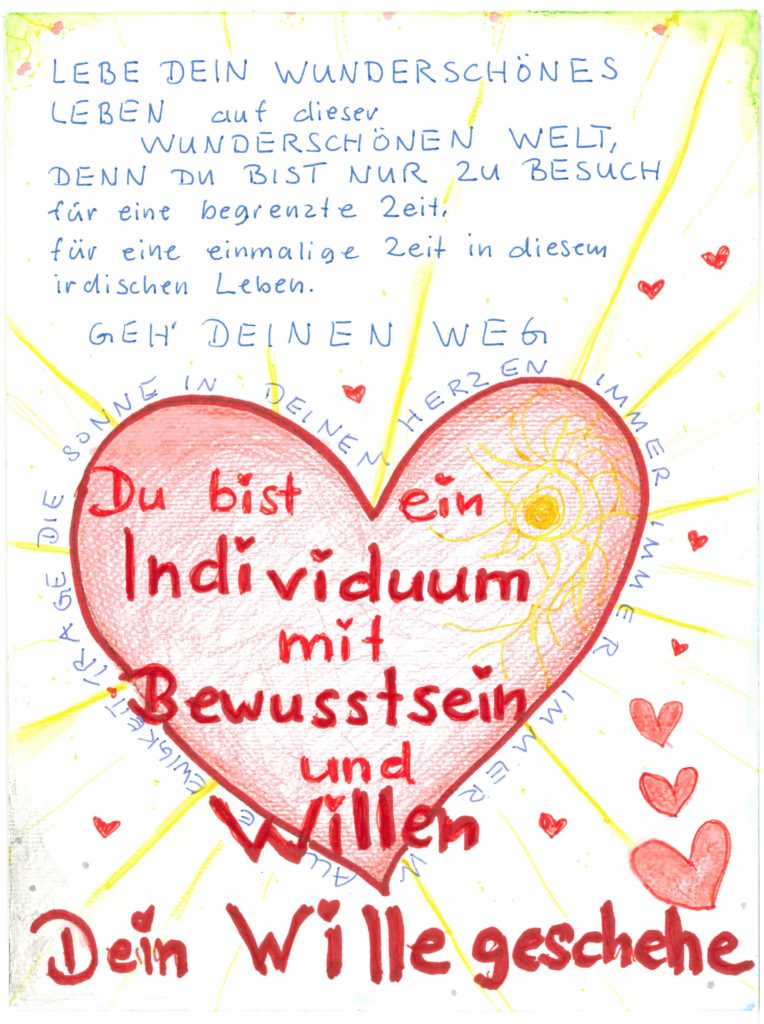 LEBE DEIN WUNDERSCHÖNES
LEBEN auf dieser
WUNDERSCHÖNEN WELT,
DENN DU BIST NUR ZU BESUCH
für eine begrenzte Zeit.
für eine einmalige Zeit in diesem
irdischen Leben.
GEH' DEINEN WEG
TRAGE DIE SONNE IN DEINEN HERZEN IMMER IMMER IMMER EWIGKEIT
Du bist ein
Individuum
mit
Bewusstsein
und
Willen
Dein Wille geschehe